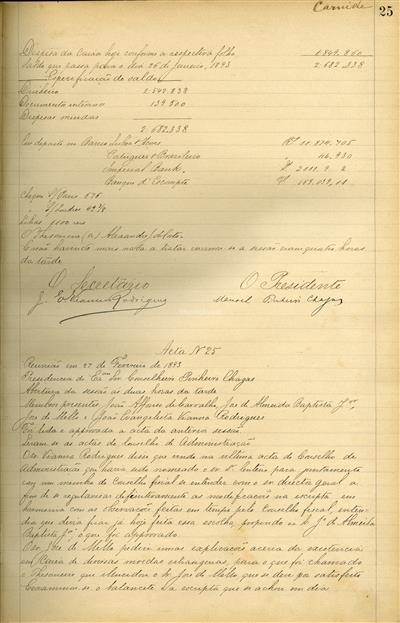 Carnide
25
Despesa da Caixa hoje conforme a respectiva folha 1.849.860
Saldo que passa para o dia 26 de Janeiro, 1893 2.682.338
Especificação do saldo
Dinheiro 2.542.838
Documentos internos 139.500
Despesas miudas
2.682.338
Em deposito em Bancos Lisboa & Açores Rs 11.874.705
Portuguez e Brazileiro
Imperial Bank. £ 2111. 9. 2
Banque d'Escompte
Cheques s/ Paris 576
s/ Londres 42
Libras
O Thesoureiro (a) Alexandre
E não havendo mais nada a tratar cerrou-se a sessão eram quatro horas
da tarde
O Secretario O Presidente
J. Evangelista Vianna Rodrigues Manoel Pinheiro Chagas
Acta Nº 25
Reunião em 27 de Fevereiro de 1893
Presidencia do Exmo Snr Conselheiro Pinheiro Chagas
Abertura da sessão ás duas horas da tarde
Membros presentes, João Affonso de Carvalho, José de Almeida Baptista Jor,
José de Mello e João Evangelista Vianna Rodrigues
Foi lida e approvada a acta da anterior sessão
Leram-se as actas do Conselho de Administração
O Snr Vianna Rodrigues disse que vendo na ultima acta do Conselho de
Administração que havia sido nomeado o snr para juntamente
com um membro do Conselho Fiscal se entender com o snr director geral a
fim de se regularisar definitivamente as modificações na escripta, em
harmonia com as observações feitas em tempo pelo Conselho fiscal, enten-
dia que devia ficar já hoje feita essa escolha, propondo o Snr Jé de Almeida
Baptista Jor o que foi approvado
O Snr José de Mello pediu umas explicações acerca da existencia
em Caixa de diversas moedas estrangeiras, para o que foi chamado
o Thesoureiro que elucidou o Sr José de Mello que se deu por satisfeito
Examinou-se o balancete da escripta que se achou em dia